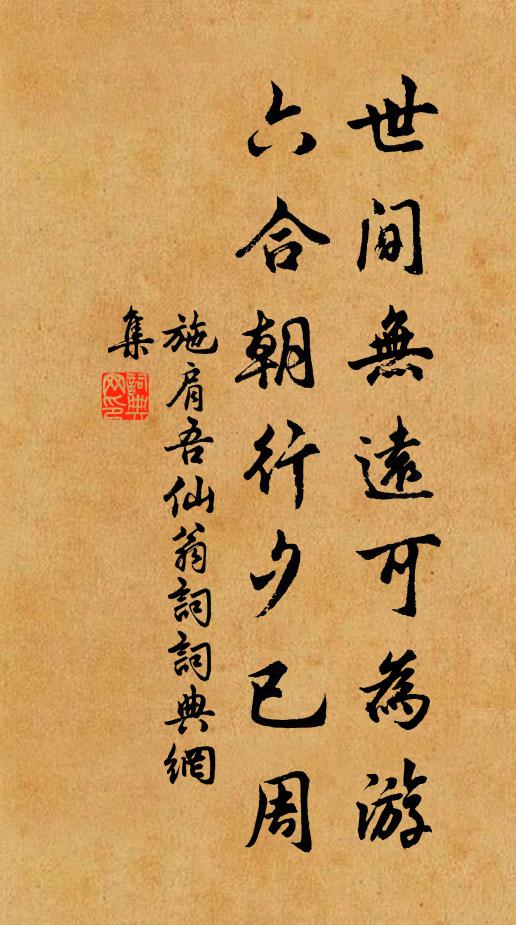 世间無遠可為游
六合朝行夕已周
施肩吾仙翁詞詞典網
集
詞典網印